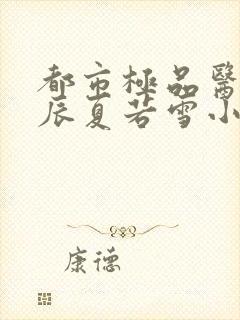 都市極品醫
辰夏若雪小
康德